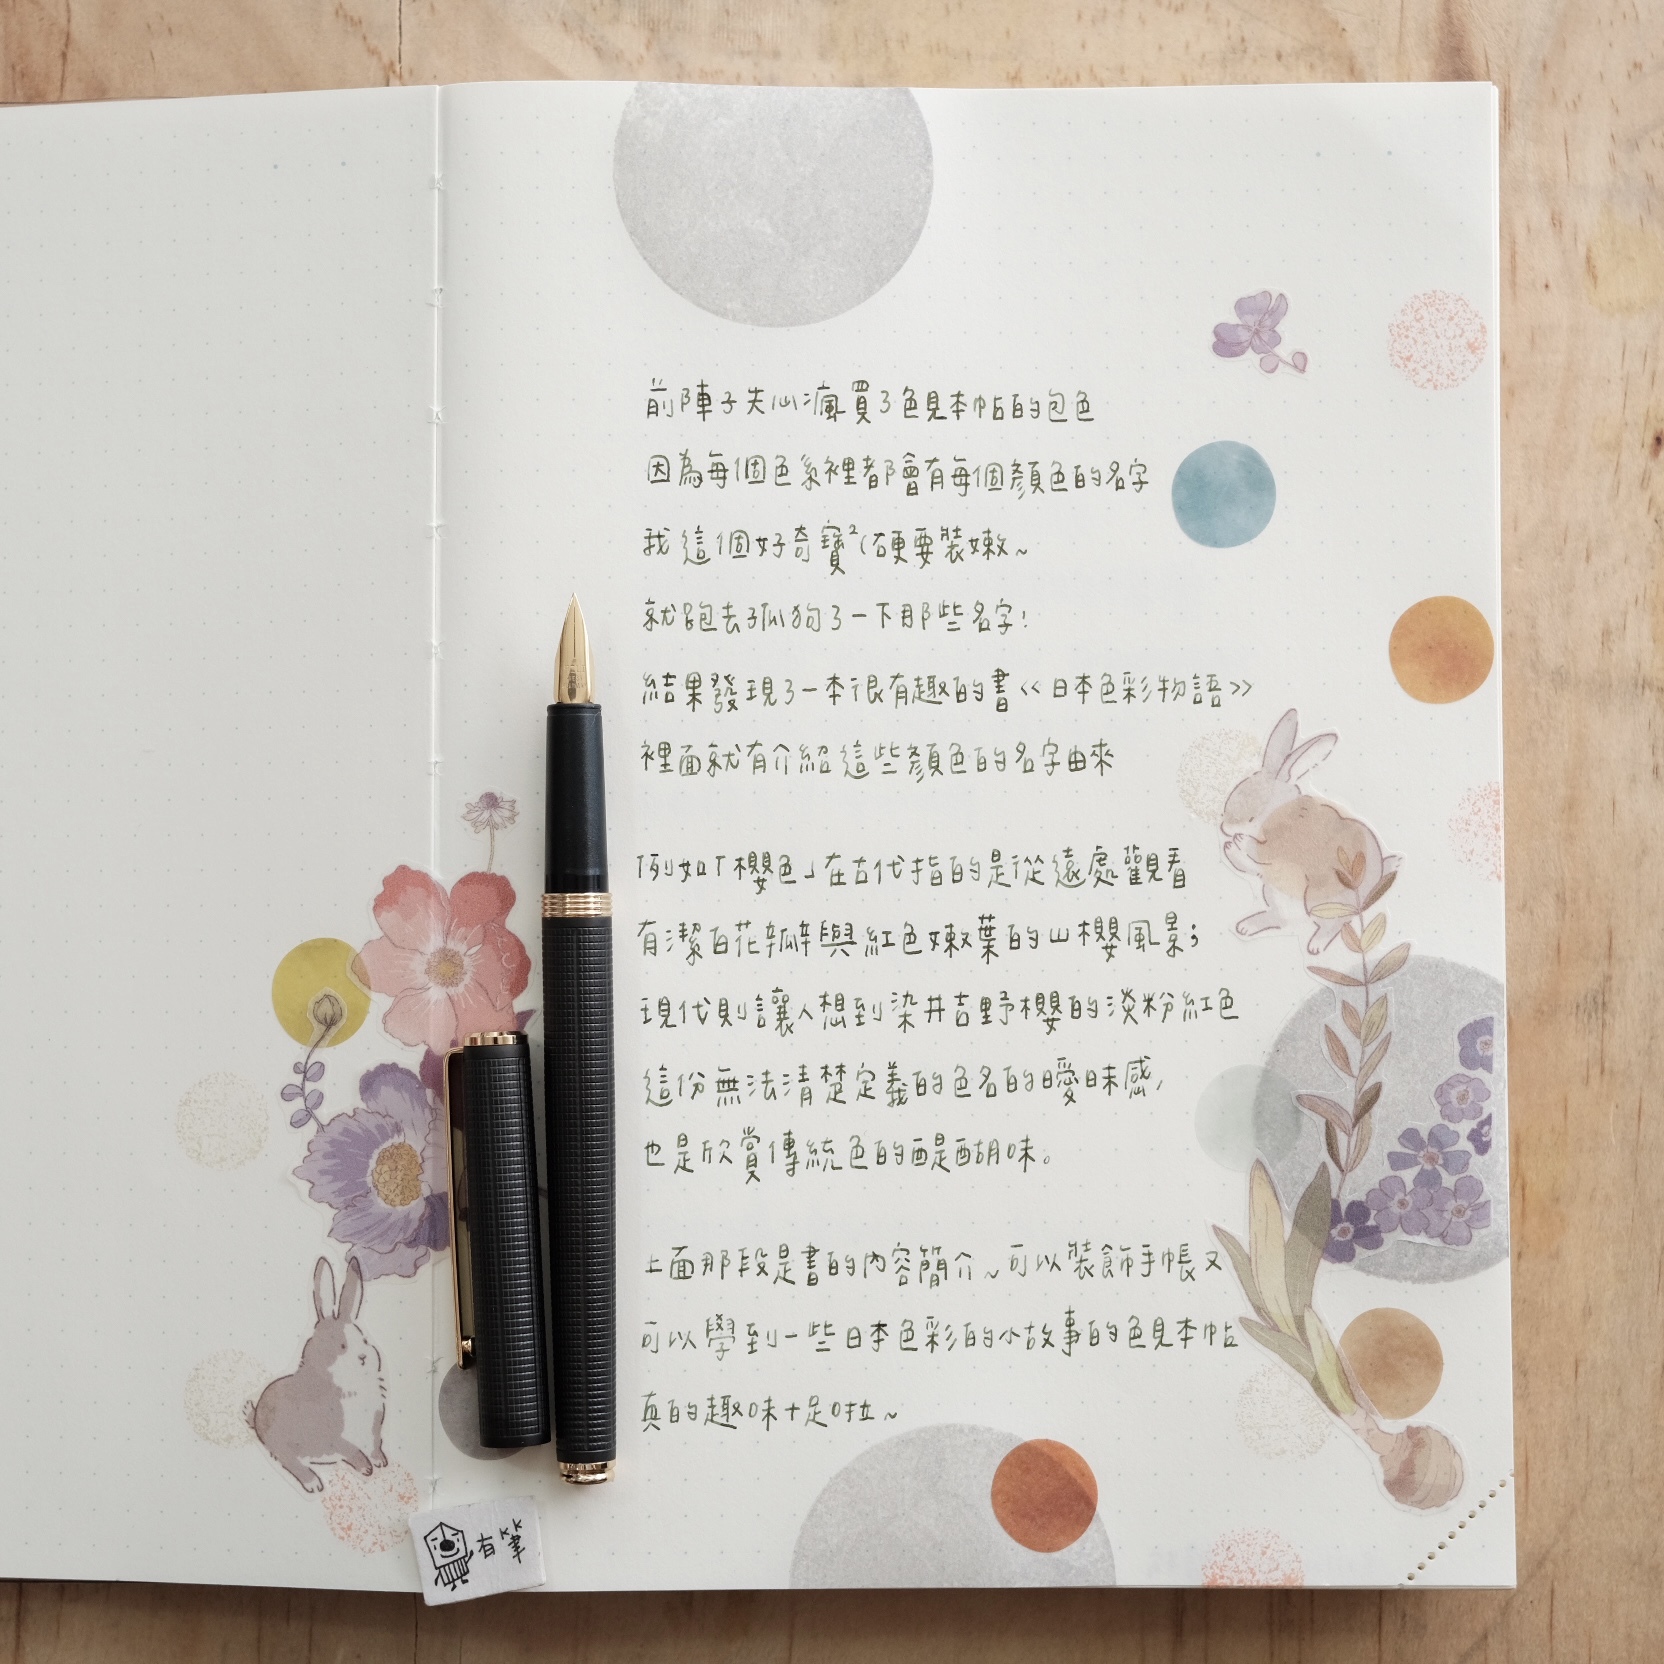 前陣子失心瘋買了色見本帖的包色
因為每個色系裡都會有每個顏色的名字
我這個好奇寶²(硬要裝嫩~
就跑去孤狗了一下那些名字!
結果發現了一本很有趣的書<<日本色彩物語>>
裡面就有介紹這些顏色的名字由來
例如「櫻色」在古代指的是從遠處觀看
有潔白花瓣與紅色嫩葉的山櫻風景;
現代則讓人想到染井吉野櫻的淡粉紅色
這份無法清楚定義的色名的曖昧感,
也是欣賞傳統色的醍醐味。
上面那段是書的內容簡介~可以裝飾手帳又
可以學到一些日本色彩的小故事的色見本帖
真的趣味十足啦~
有筆